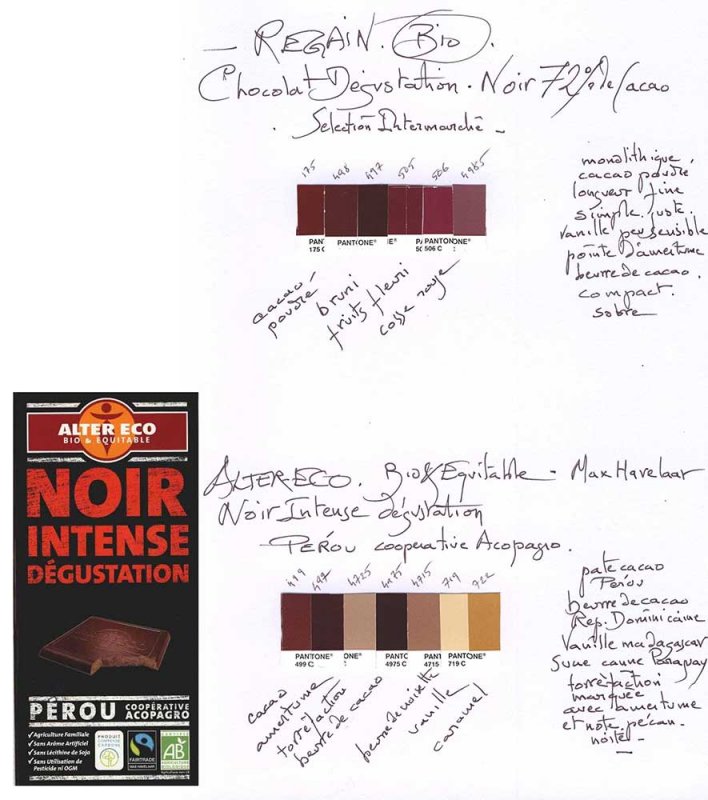 - REGAIN. Bio.
Chocolat Dégustation. Noir 72% de Cacao
. Sélection Intermarché -
175 498 497 505 506 4985
PAN PANTONE® NE® PANTONE®
175 C 50 506 C
cacao poudre
bruni
fruits fleuri
cosse rouge
monolithique.
cacao poudre
longueur fine
simple. juste.
vanille peu sensible
pointe d'amertume
beurre de cacao.
compact.
sobre
ALTER ECO
BIO & EQUITABLE
NOIR
INTENSE
DÉGUSTATION
PÉROU COOPÉRATIVE
ACOPAGRO
✓Agriculture Familiale
✓Sans Arôme Artificiel
✓Sans Lécithine de Soja
✓Sans Utilisation de
Pesticide ni OGM
PRODUIT
COMPENSÉ
CARBONE
FAIRTRADE
MAX HAVELAAR
CERTIFIÉ
AB
AGRICULTURE
BIOLOGIQUE
ALTER-ECO. Bio & Equitable - Max Havelaar
Noir Intense dégustation
PÉROU coopérative Acopagro.
497 4725 4975 4715 719 722
PANTONE® PANTONE® PANT PANTONE®
499 C C 4975 C 4715 719 C
cacao
amertume
torréfaction
beurre de cacao
beurre de noisette
vanille
caramel
pate cacao
Pérou
beurre de cacao
Rep. Dominicaine
Vanille madagascar
Sucre canne Paraguay
torréfaction
marquée
avec amertume
et note pécan.